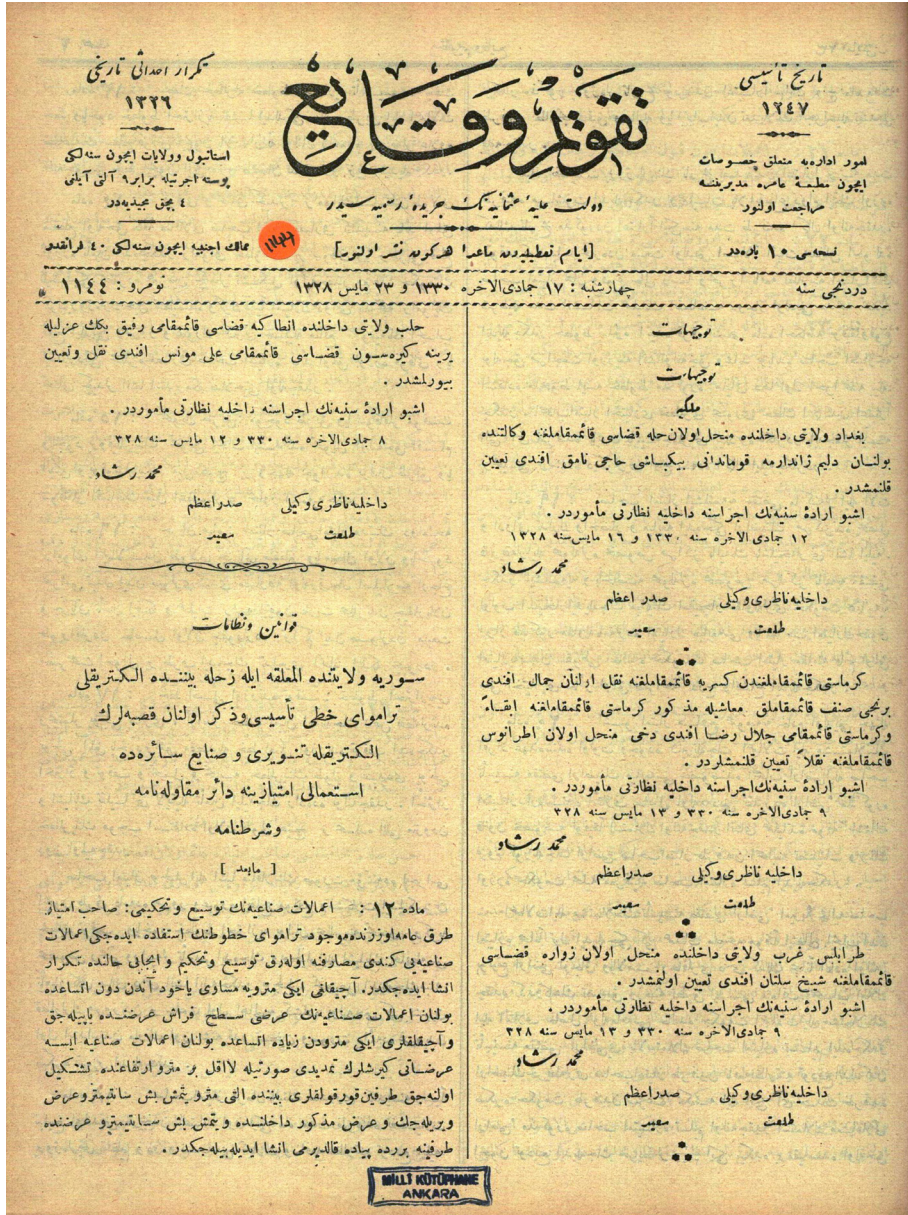 تاریخ تأسیسی
١٢٤٧
امور اداره‌یه متعلق خصوصات
ایچون مطبعهٔ عامره مدیریتنه
مراجعت اولنور
نسخه‌سی ١٠ پاره‌در
تقویم وقایع
دولت علیهٔ عثمانیه‌نك جریدهٔ رسمیه سیدر
[ایام تعطیلیه‌دن ماعدا هركون نشر اولنور]
تكرار احداثی تاریخی
١٣٢٦
استانبول وولایات ایچون سنه لكی
پوسته اجرتیله برابر ٩ آلتی آیلغی
٤ بچق مجیدیه‌در
ممالك اجنبیه ایچون سنه لكی ٤٠ فرانقدر
١١٤٤
دردنجی سنه
چهارشنبه : ١٧ جمادی‌الاخره ١٣٣٠ و ٢٣ مایس ١٣٢٨
نومرو : ١١٤٤
توجیهات
توجیهات
ملكیه
بغداد ولایتی داخلنده منحل اولان حله قضاسی قائممقاملغنه وكالتنده
بولنان دلیم ژاندارمه قوماندانی بیكباشی حاجی نامق افندی تعیین
قلنمشدر .
اشبو ارادهٔ سنیه‌نك اجراسنه داخلیه نظارتی مأموردر .
١٢ جمادی الاخره سنه ١٣٣٠ و ١٦ مایس سنه ١٣٢٨
محمد رشاد
داخلیه ناظری وكیلی صدر اعظم
طلعت سعید
كرماستی قائممقاملغندن كسریه قائممقاملغنه نقل اولنان جمال افندی
برنجی صنف قائممقاملق معاشیله مذكور كرماستی قائممقاملغنه ابقاءً
وكرماستی قائممقامی جلال رضا افندی دخی منحل اولان اطرانوس
قائممقاملغنه نقلاً تعیین قلنمشلردر .
اشبو ارادهٔ سنیه‌نك اجراسنه داخلیه نظارتی مأموردر .
٩ جمادی‌الاخره سنه ٣٣٠ و ١٣ مایس سنه ٣٢٨
محمد رشاد
داخلیه ناظری وكیلی صدراعظم
طلعت سعید
طرابلس غرب ولایتی داخلنده منحل اولان زواره قضاسی
قائممقاملغنه شیخ سلتان افندی تعیین اولنمشدر .
اشبو ارادهٔ سنیه‌نك اجراسنه داخلیه نظارتی مأموردر .
٩ جمادی‌الاخره سنه ٣٣٠ و ١٣ مایس سنه ٣٢٨
محمد رشاد
داخلیه ناظری وكیلی صدراعظم
طلعت سعید
حلب ولایتی داخلنده انطاكیه قضاسی قائممقامی رفیق بكك عزلیله
یرینه كیره‌سون قضاسی قائممقامی علی مونس افندی نقل وتعیین
بیورلمشدر .
اشبو ارادهٔ سنیه‌نك اجراسنه داخلیه نظارتی مأموردر .
٨ جمادی‌الاخره سنه ٣٣٠ و ١٢ مایس سنه ٣٢٨
محمد رشاد
داخلیه ناظری وكیلی صدراعظم
طلعت سعید
قوانین ونظامات
سوریه ولایتنده المعلقه ایله زحله بیننده الكتریقلی
تراموای خطی تأسیسی وذكر اولنان قصبه‌لرك
الكتریقله تنویری و صنایع سائره‌ده
استعمالی امتیازینه دائر مقاوله‌نامه
وشرطنامه
[ مابعد ]
ماده ١٢ : اعمالات صناعیه‌نك توسیع و تحكیمی: صاحب امتیاز
طرق عامه اوزرنده موجود تراموای خطوطنك استفاده ایده‌جكی اعمالات
صناعیه‌یی كندی مصارفنه اوله‌رق توسیع وتحكیم و ایجابی حالنده تكرار
انشا ایده‌جكدر. آچیقلغی ایكی مترویه مساوی یاخود آندن دون اتساعده
بولنان اعمالات صناعیه‌نك عرضی سطح فراش عرضنده یاپیله‌جق
و آچیقلقلری ایكی مترودن زیاده اتساعده بولنان اعمالات صناعیه ایسه
عرضانی كیرشلرك تمدیدی صورتیله لااقل بر مترو ارتفاعنده تشكیل
اولنه‌جق طرفین قورقولقلری بیننده التی مترو یتمش بش سانتیمترو عرض
ویریله‌جك و عرض مذكور داخلنده و یتمش بش سانتیمترو عرضنده
طرفینه بررده پیاده قالدیرمی انشا ایدیله‌بیله‌جكدر .
MİLLÎ KÜTÜPHANE
ANKARA